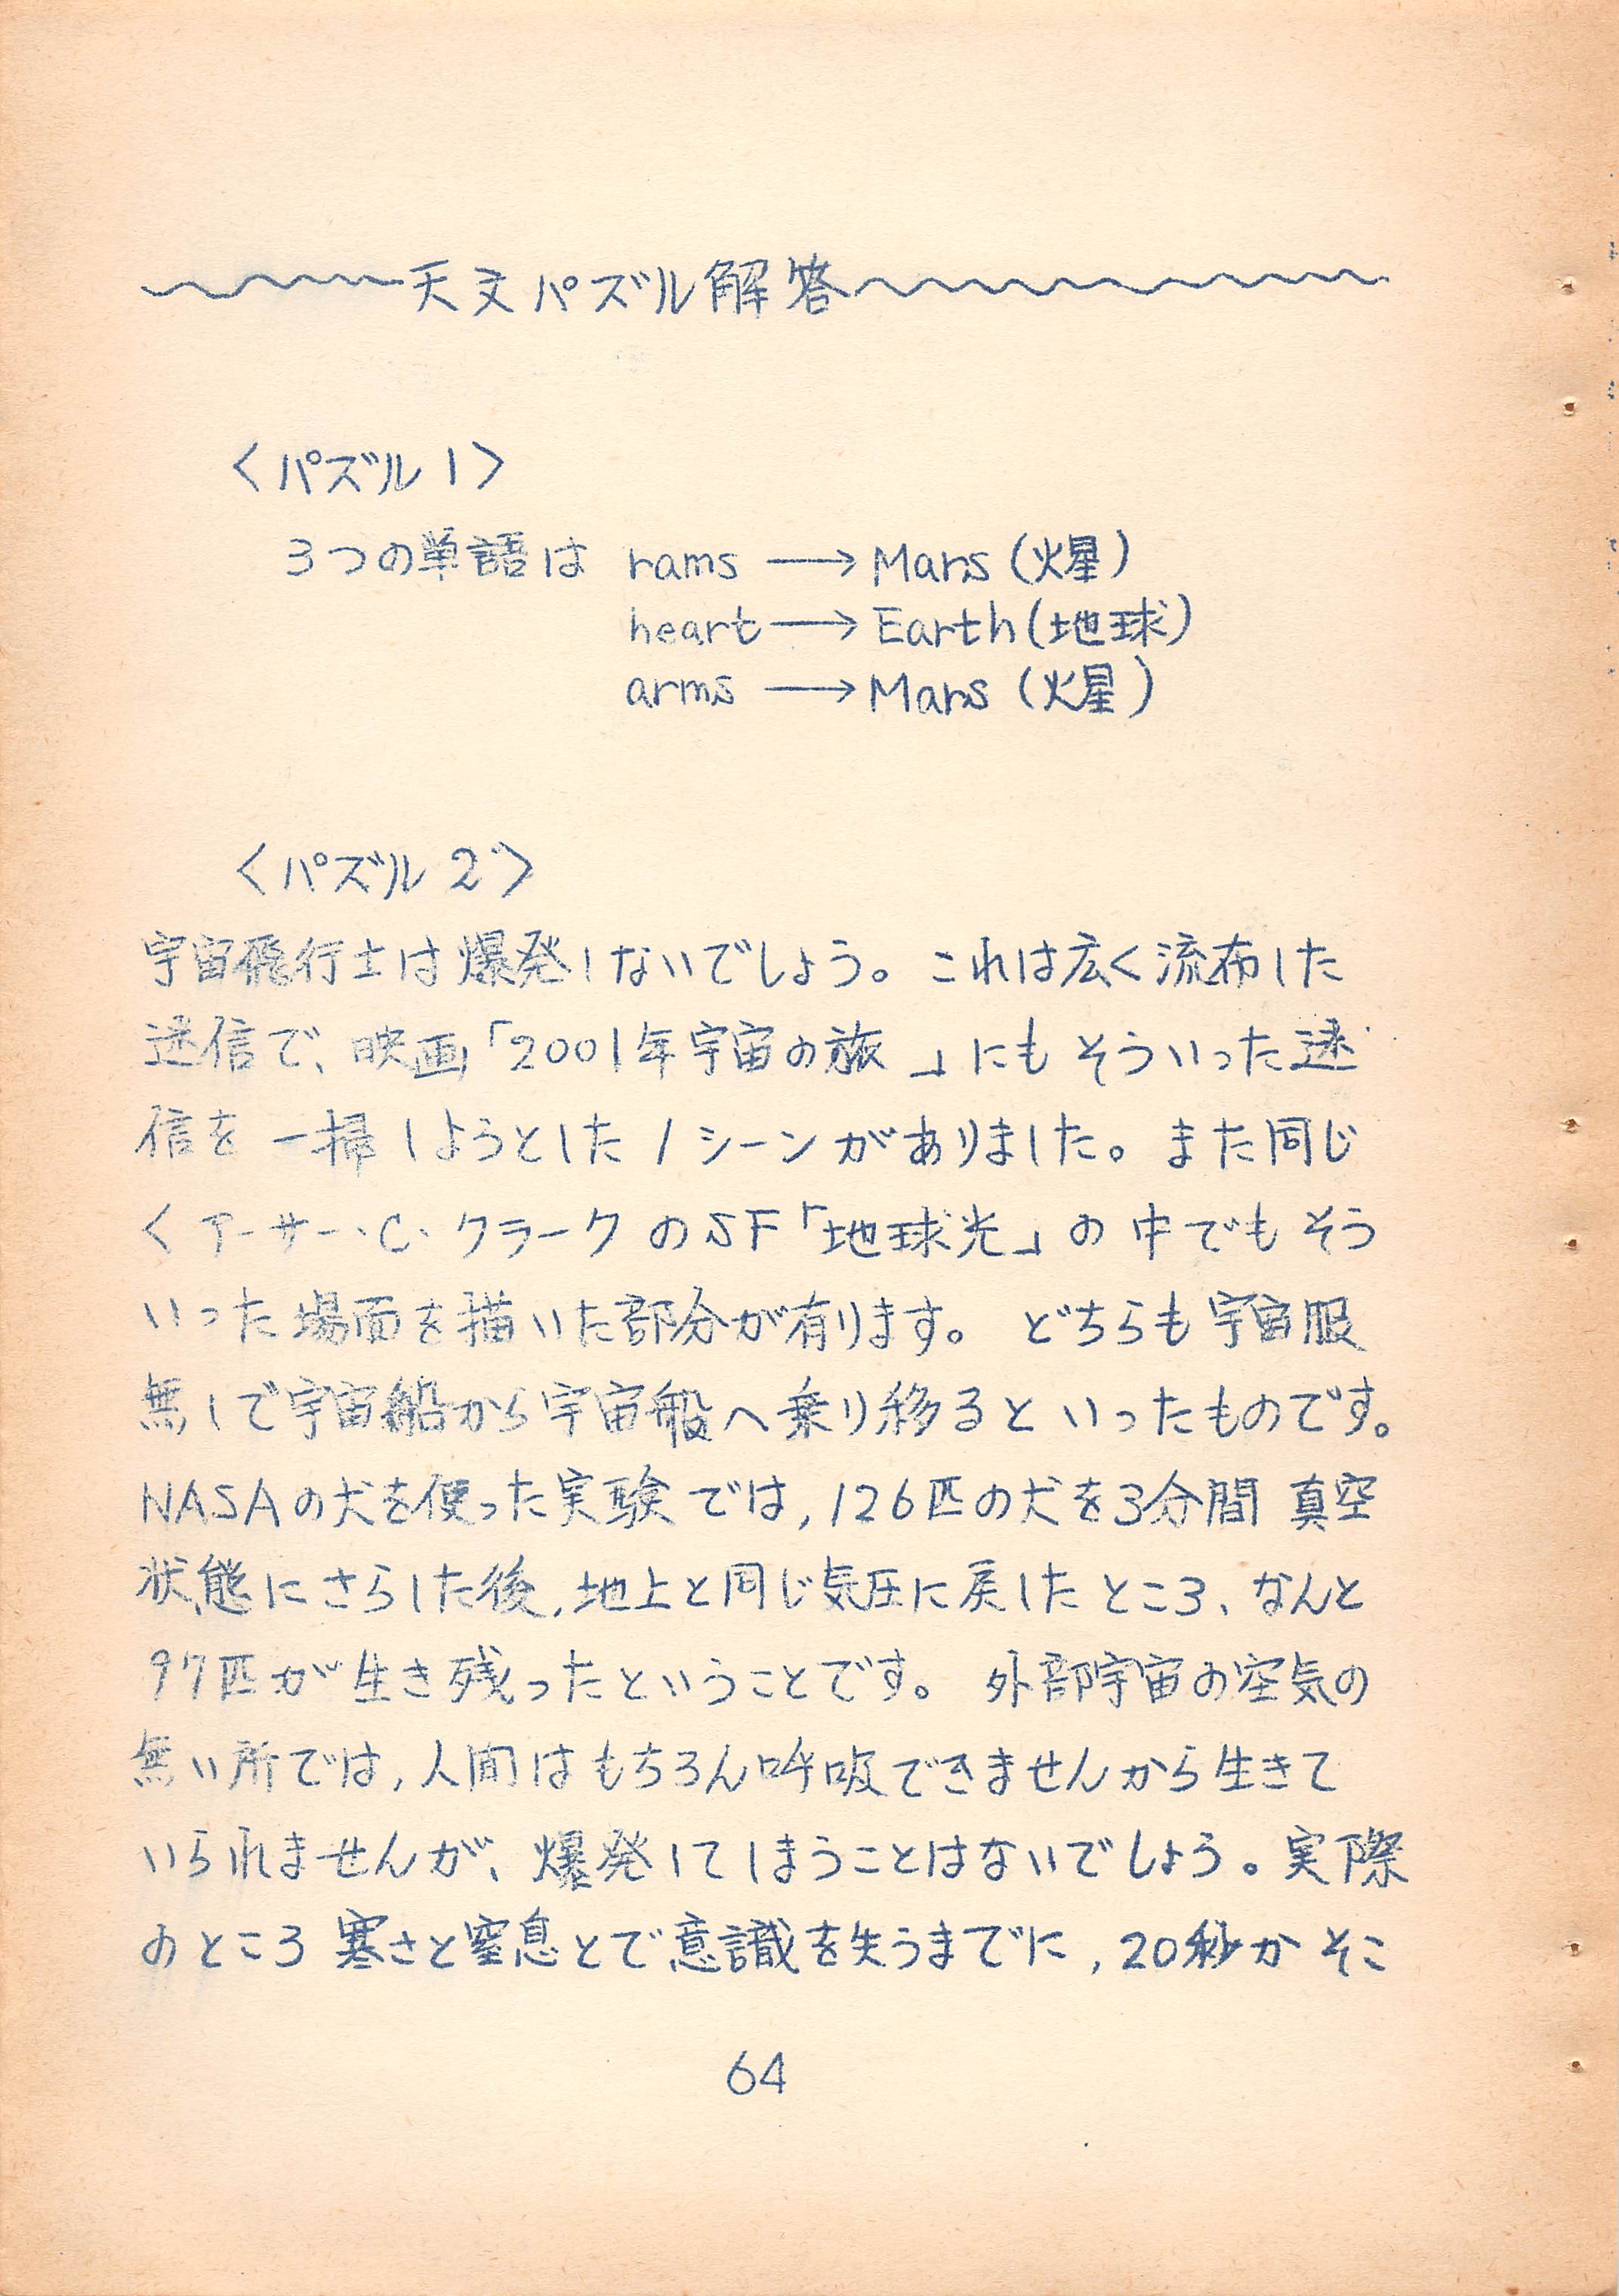 天文パズル解答
〈パズル1〉
3つの単語は rams → Mars(火星)
heart → Earth(地球)
arms → Mars(火星)
〈パズル2〉
宇宙飛行士は爆発しないでしょう。これは広く流布した
迷信で、映画「2001年宇宙の旅」にもそういった迷
信を一掃しようとした1シーンがありました。また同じ
くアーサー・C・クラークのSF「地球光」の中でもそう
いった場面を描いた部分が有ります。どちらも宇宙服
無しで宇宙船から宇宙船へ乗り移るといったものです。
NASAの犬を使った実験では,126匹の犬を3分間真空
状態にさらした後,地上と同じ気圧に戻したところ、なんと
97匹が生き残ったということです。外部宇宙の空気の
無い所では,人間はもちろん呼吸できませんから生きて
いられませんが、爆発してしまうことはないでしょう。実際
のところ寒さと窒息とで意識を失うまでに,20秒かそこ
64